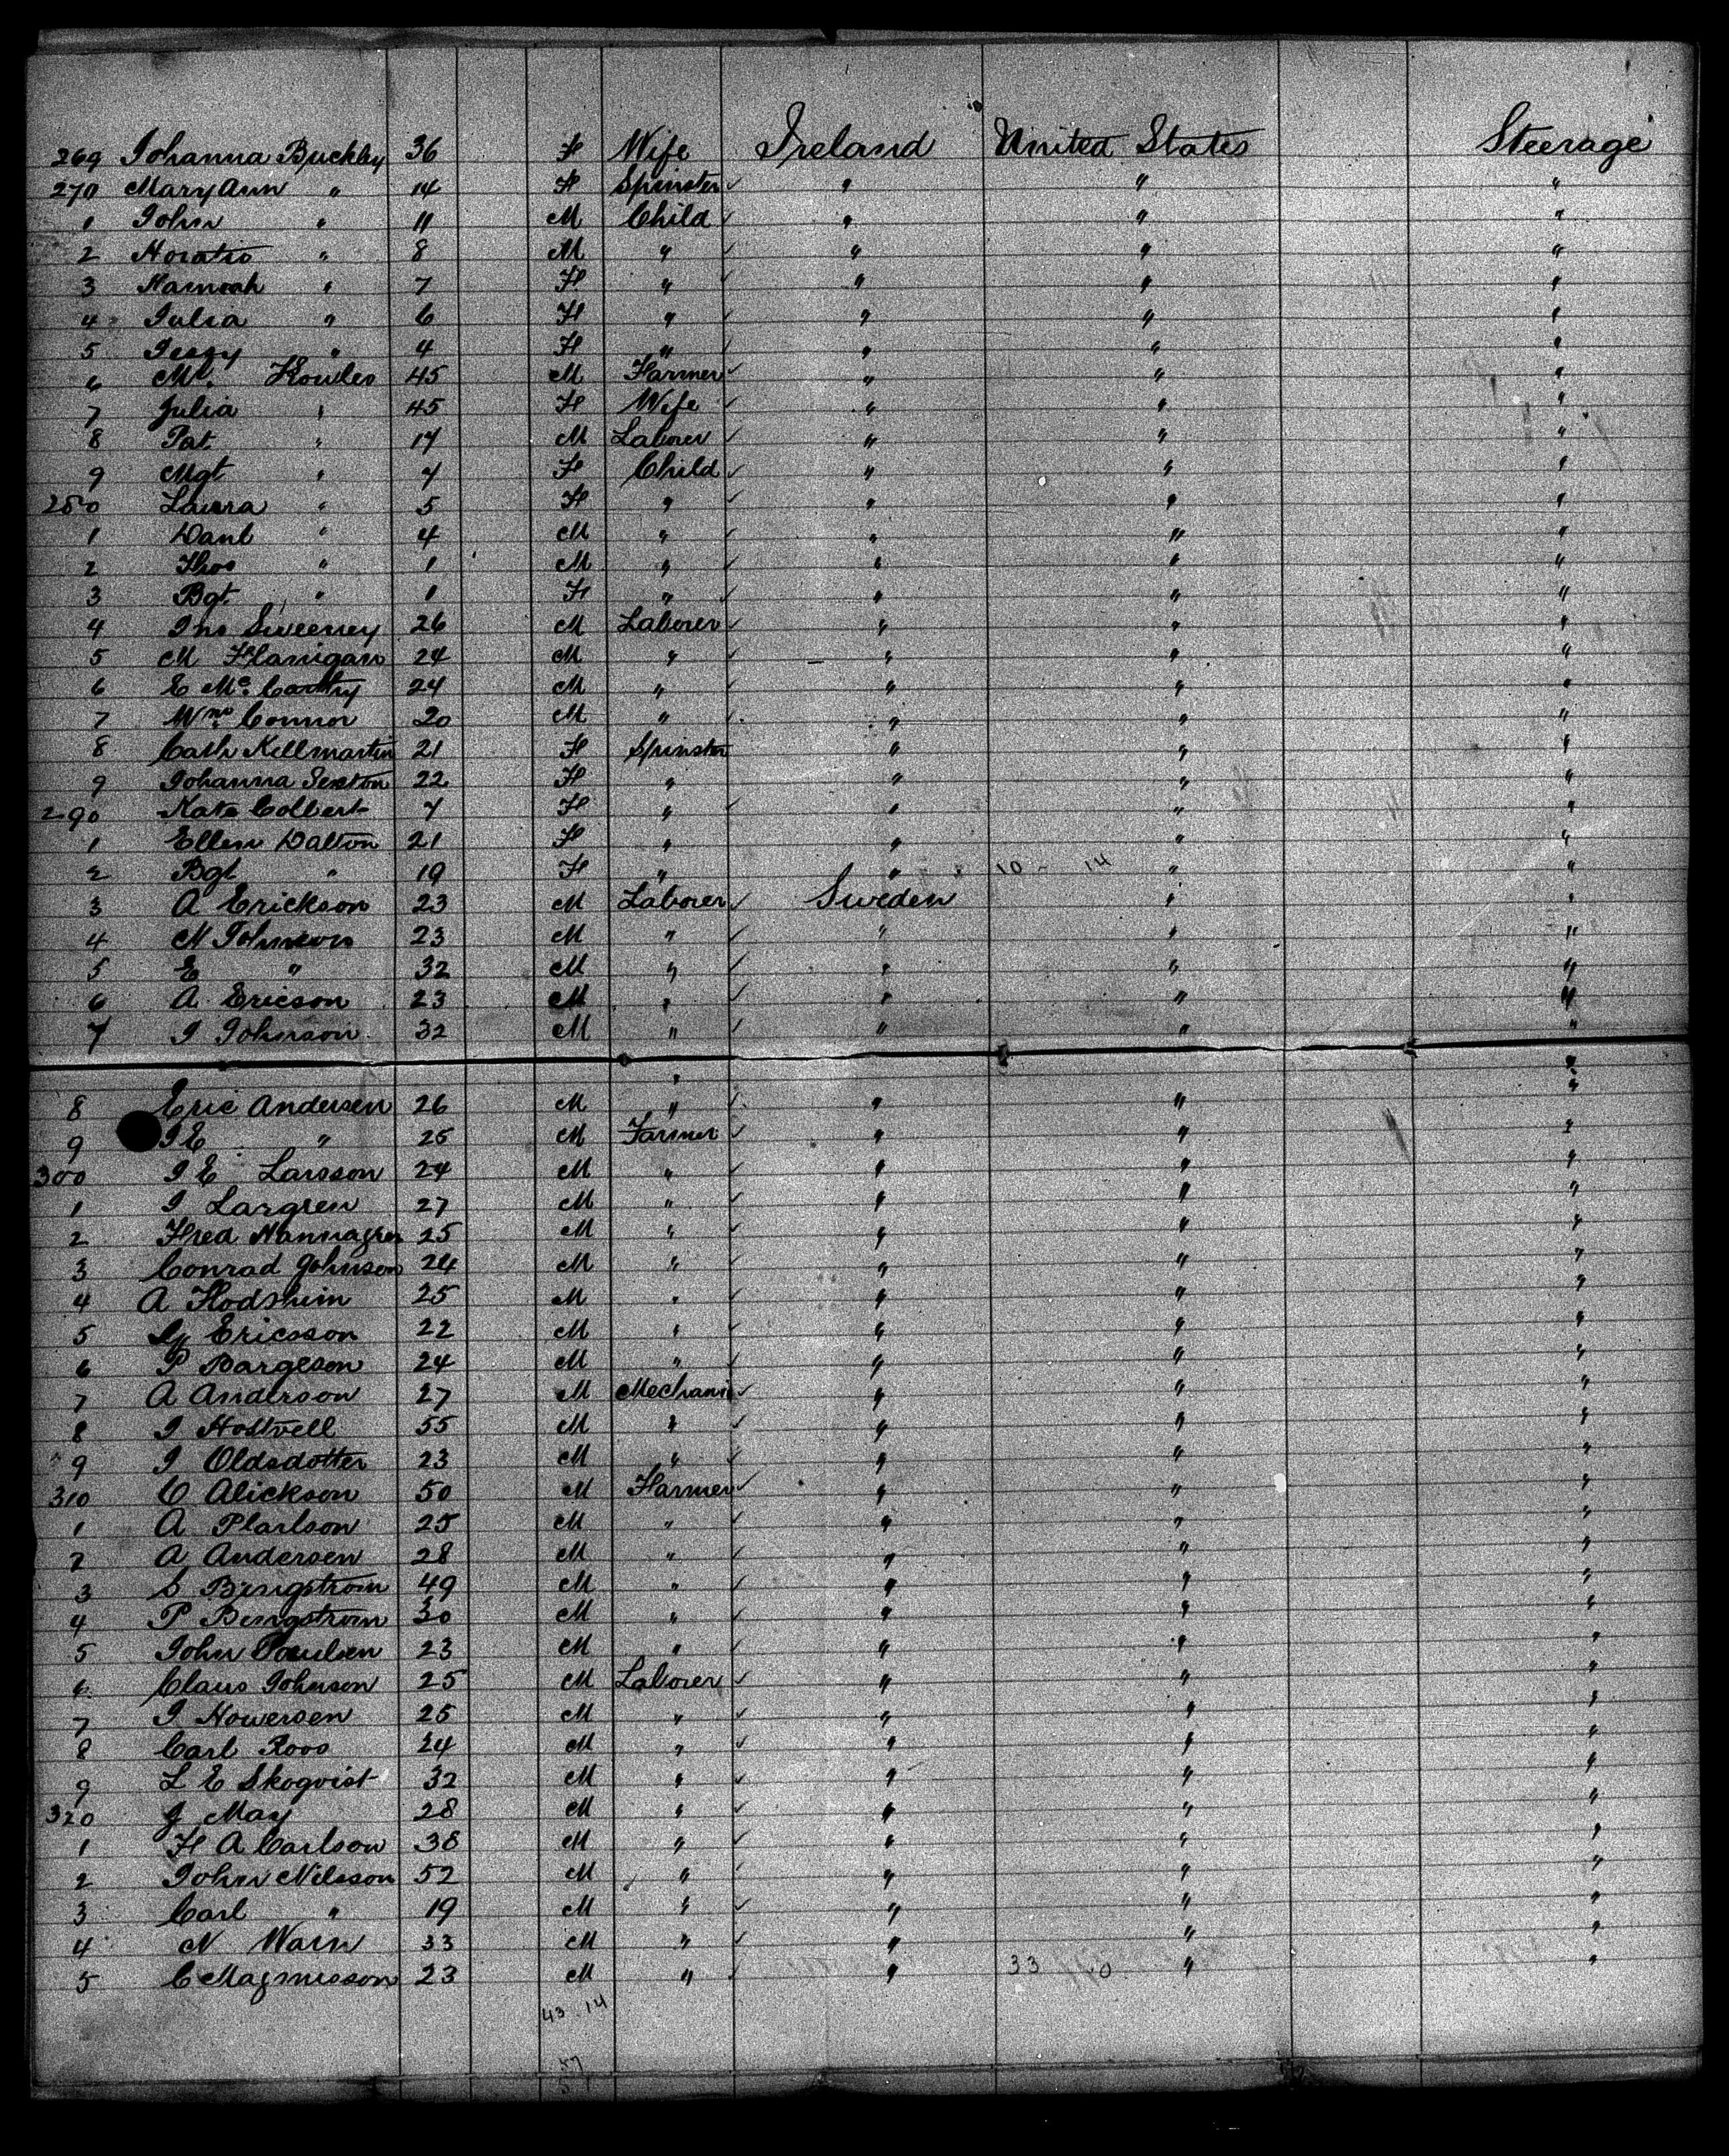 269 Johanna Buckley 36 F Wife Ireland United States Steerage
270 Mary Ann " 14 F Spinster " " "
1 John " 11 M Child " " "
2 Horatio " 8 M " " " "
3 Hannah " 7 F " " " "
4 Julia " 6 F " " " "
5 Jessy " 4 F " " " "
6 Ml. Fowles 45 M Farmer " " "
7 Julia " 45 F Wife " " "
8 Pat " 17 M Laborer " " "
9 Mgt " 7 F Child " " "
280 Laura " 5 F " " " "
1 Danl " 4 M " " " "
2 Thos " 1 M " " " "
3 Bgt " 1 F " " " "
4 Jno Sweeney 26 M Laborer " " "
5 M Flanigan 24 M " " " "
6 E Mc. Carthy 24 M " " " "
7 Wm Connor 20 M " " " "
8 Cath Kellmartin 21 F Spinster " " "
9 Johanna Sexton 22 F " " " "
290 Kate Colbert 7 F " " " "
1 Ellen Dalton 21 F " " " "
2 Bgt " 19 F " " 10 - 14 " "
3 A Erickson 23 M Laborer Sweden " "
4 N Johnson 23 M " " " "
5 E " 32 M " " " "
6 A Ericson 23 M " " " "
7 J Johnson 32 M " " " "
8 Eric Andersen 26 M " " " "
9 J E " 25 M Farmer " " "
300 J E Larsson 24 M " " " "
1 J Largren 27 M " " " "
2 Fred 25 M " " " "
3 Conrad Johnson 24 M " " " "
4 A 25 M " " " "
5 Ericsson 22 M " " " "
6 P Bargeson 24 M " " " "
7 A Anderson 27 M Mechanic " " "
8 J Hostvell 55 M " " " "
9 J Oldsdotter 23 M " " " "
310 O Alickson 50 M Farmer " " "
1 A Plarlson 25 M " " " "
2 A Andersen 28 M " " " "
3 S Bengstrom 49 M " " " "
4 P Bengstrom 30 M " " " "
5 John Poulsen 23 M " " " "
6 Claus Johnson 25 M Laborer " " "
7 J Howersen 25 M " " " "
8 Carl Roos 24 M " " " "
9 L E Skogvist 32 M " " " "
320 J May 28 M " " " "
1 F A Carlson 38 M " " " "
2 John Nilsson 52 M " " " "
3 Carl " 19 M " " " "
4 N Warn 33 M " " " "
5 C Magnusson 23 M " " 33 " "
43 . 14
57